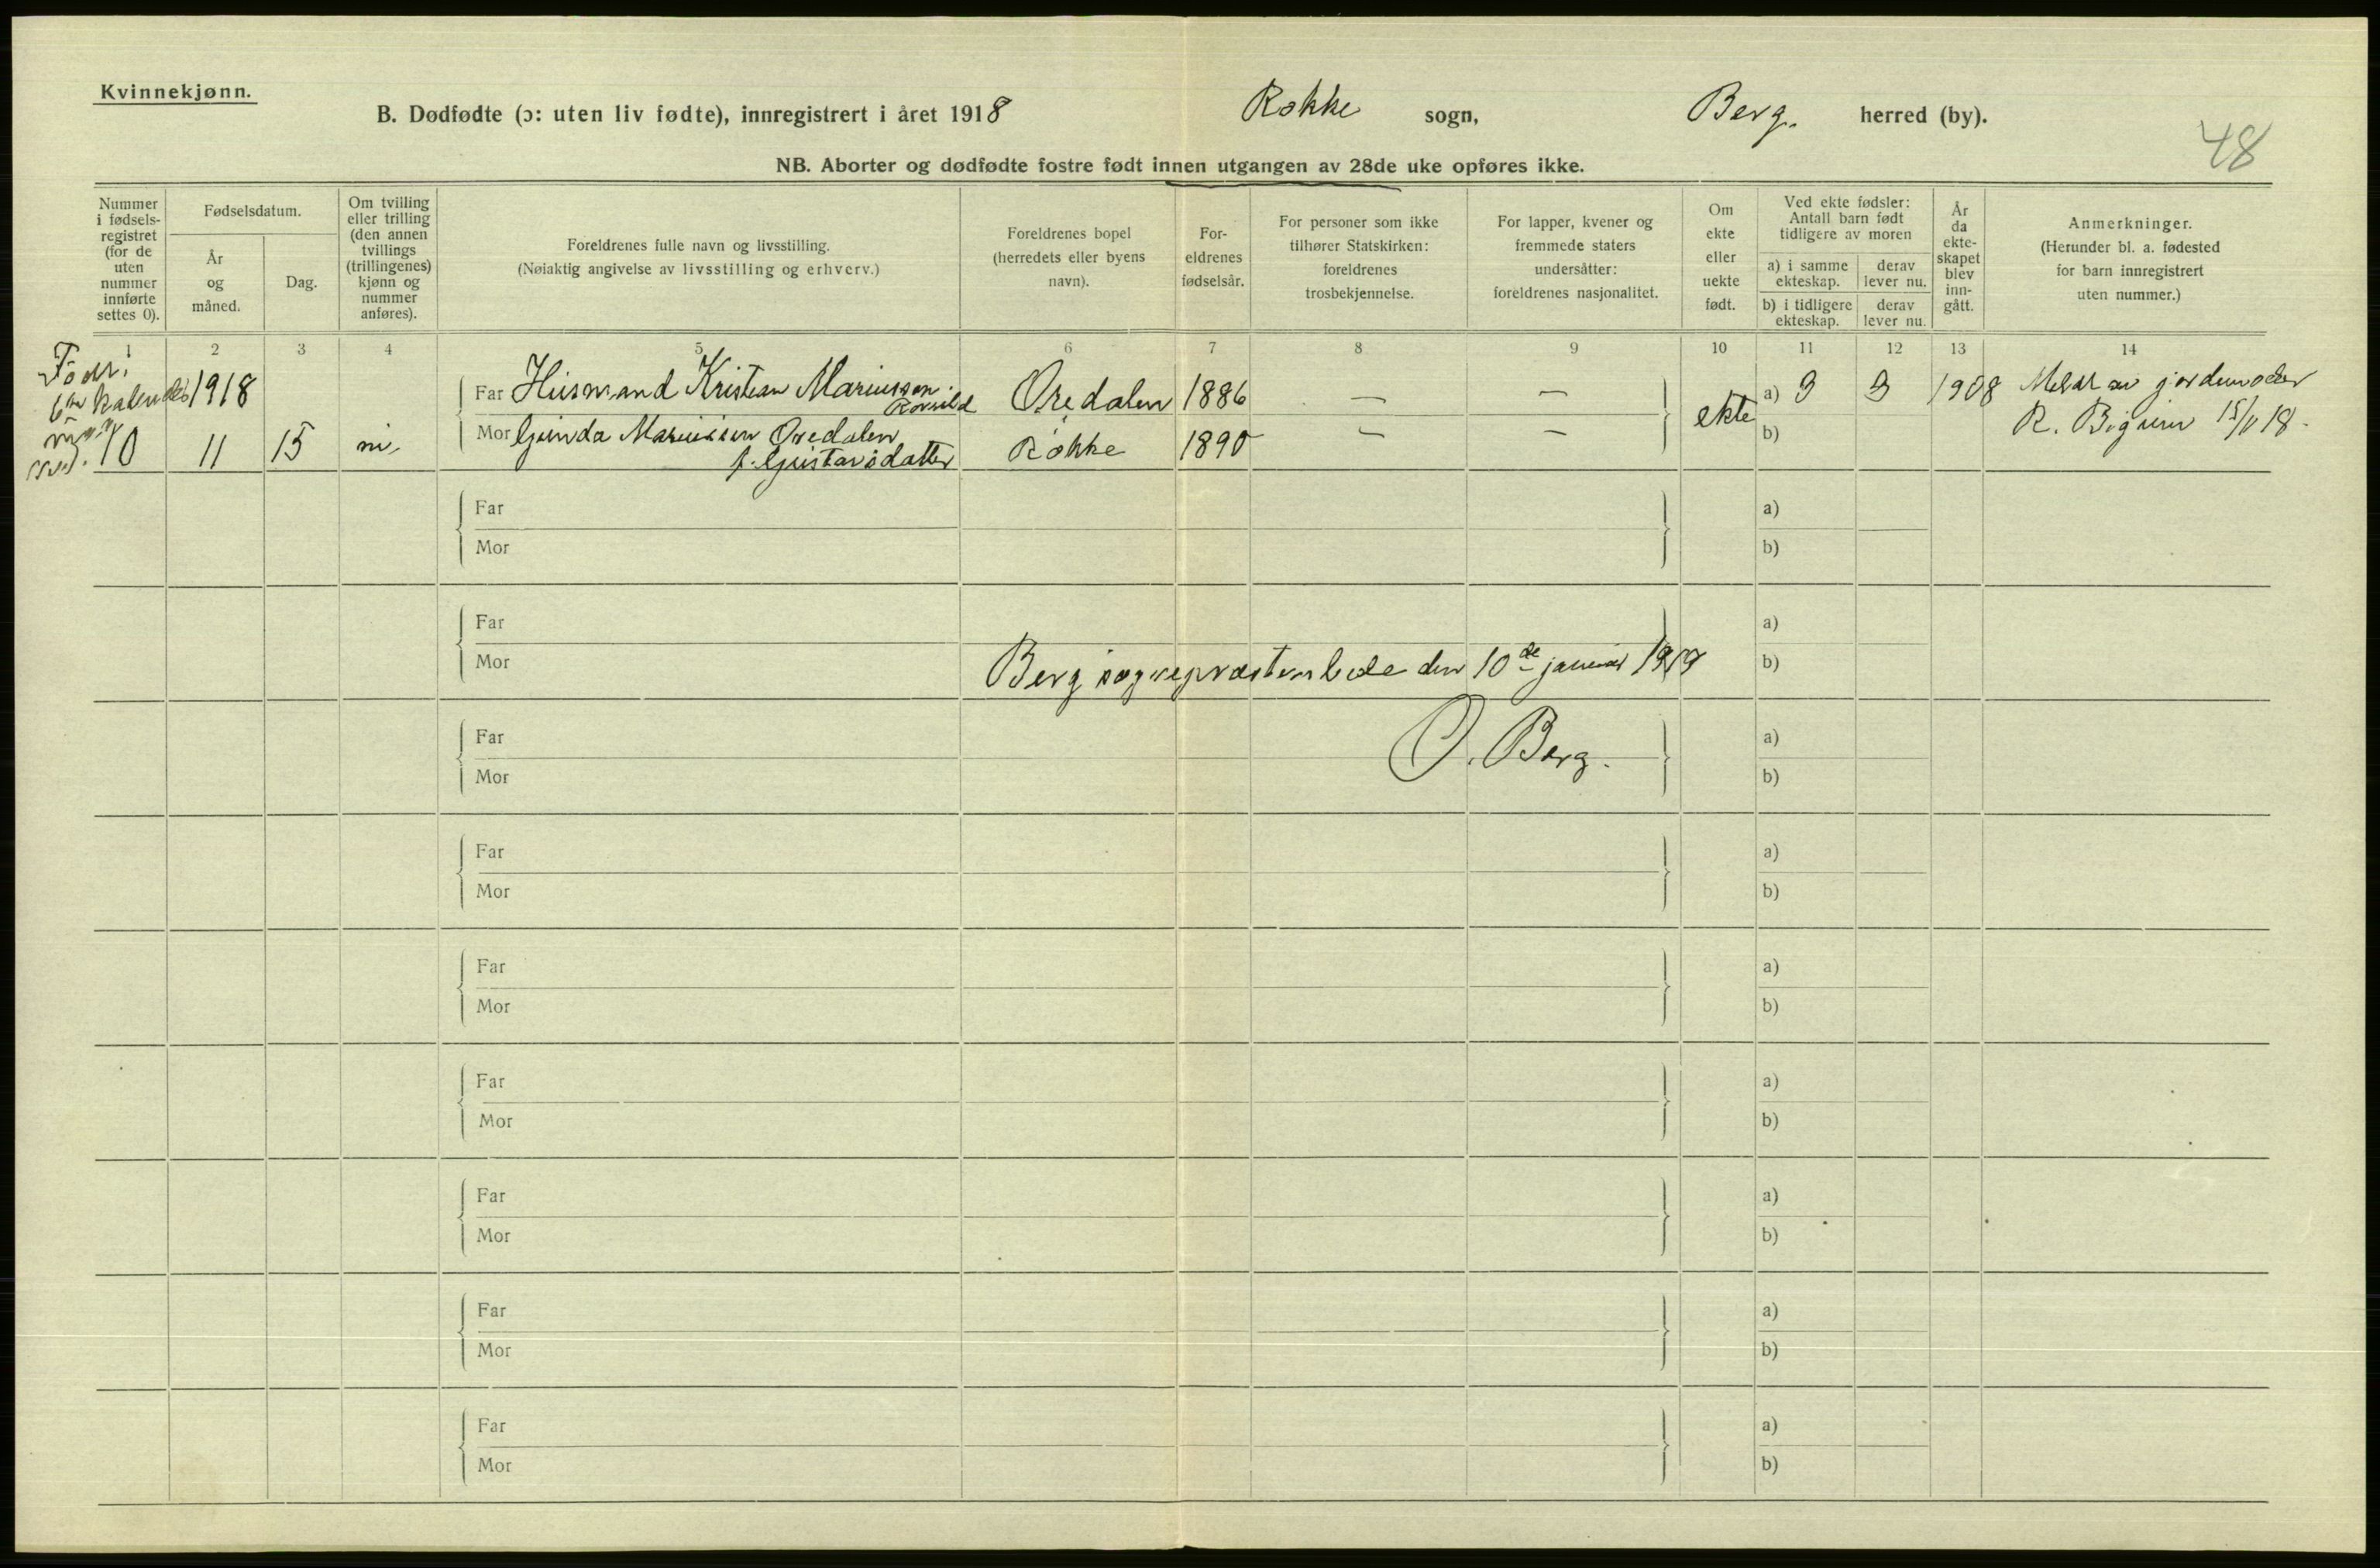 Kvinnekjønn.
B. Dødfødte (ɔ: uten liv fødte), innregistrert i året 1918 Rokke sogn, Berg. herred (by).
48
NB. Aborter og dødfødte fostre født innen utgangen av 28de uke opføres ikke.
Nummer i fødsels-registret (for de uten nummer innførte settes 0).
Fødselsdatum.
År og måned.
Dag.
Om tvilling eller trilling (den annen tvillings (trillingenes) kjønn og nummer anføres).
Foreldrenes fulle navn og livsstilling.
(Nøiaktig angivelse av livsstilling og erhverv.)
Foreldrenes bopel (herredets eller byens navn).
For-eldrenes fødselsår.
For personer som ikke tilhører Statskirken: foreldrenes trosbekjennelse.
For lapper, kvener og fremmede staters undersåtter: foreldrenes nasjonalitet.
Om ekte eller uekte født.
Ved ekte fødsler: Antall barn født tidligere av moren
a) i samme ekteskap.
derav lever nu.
b) i tidligere ekteskap.
derav lever nu.
År da ekte-skapet blev inn-gått.
Anmerkninger.
(Herunder bl. a. fødested for barn innregistrert uten nummer.)
1 2 3 4 5 6 7 8 9 10 11 12 13 14
1918 Far Husmand Kristian Mariussen Oredalen 1886 — — ekte a) 3 3 1908 Meldt av jordemoder
10 11 15 Mor Gunda Mariussen Oredalen Rokke 1890 — — b) R. 15/11 18.
f. Gustavsdatter
Far a)
Mor b)
Far a)
Mor b)
Berg sogneprestembede den 10de januar 1919
O. Berg.
Far a)
Mor b)
Far a)
Mor b)
Far a)
Mor b)
Far a)
Mor b)
Far a)
Mor b)
Far a)
Mor b)
Far a)
Mor b)